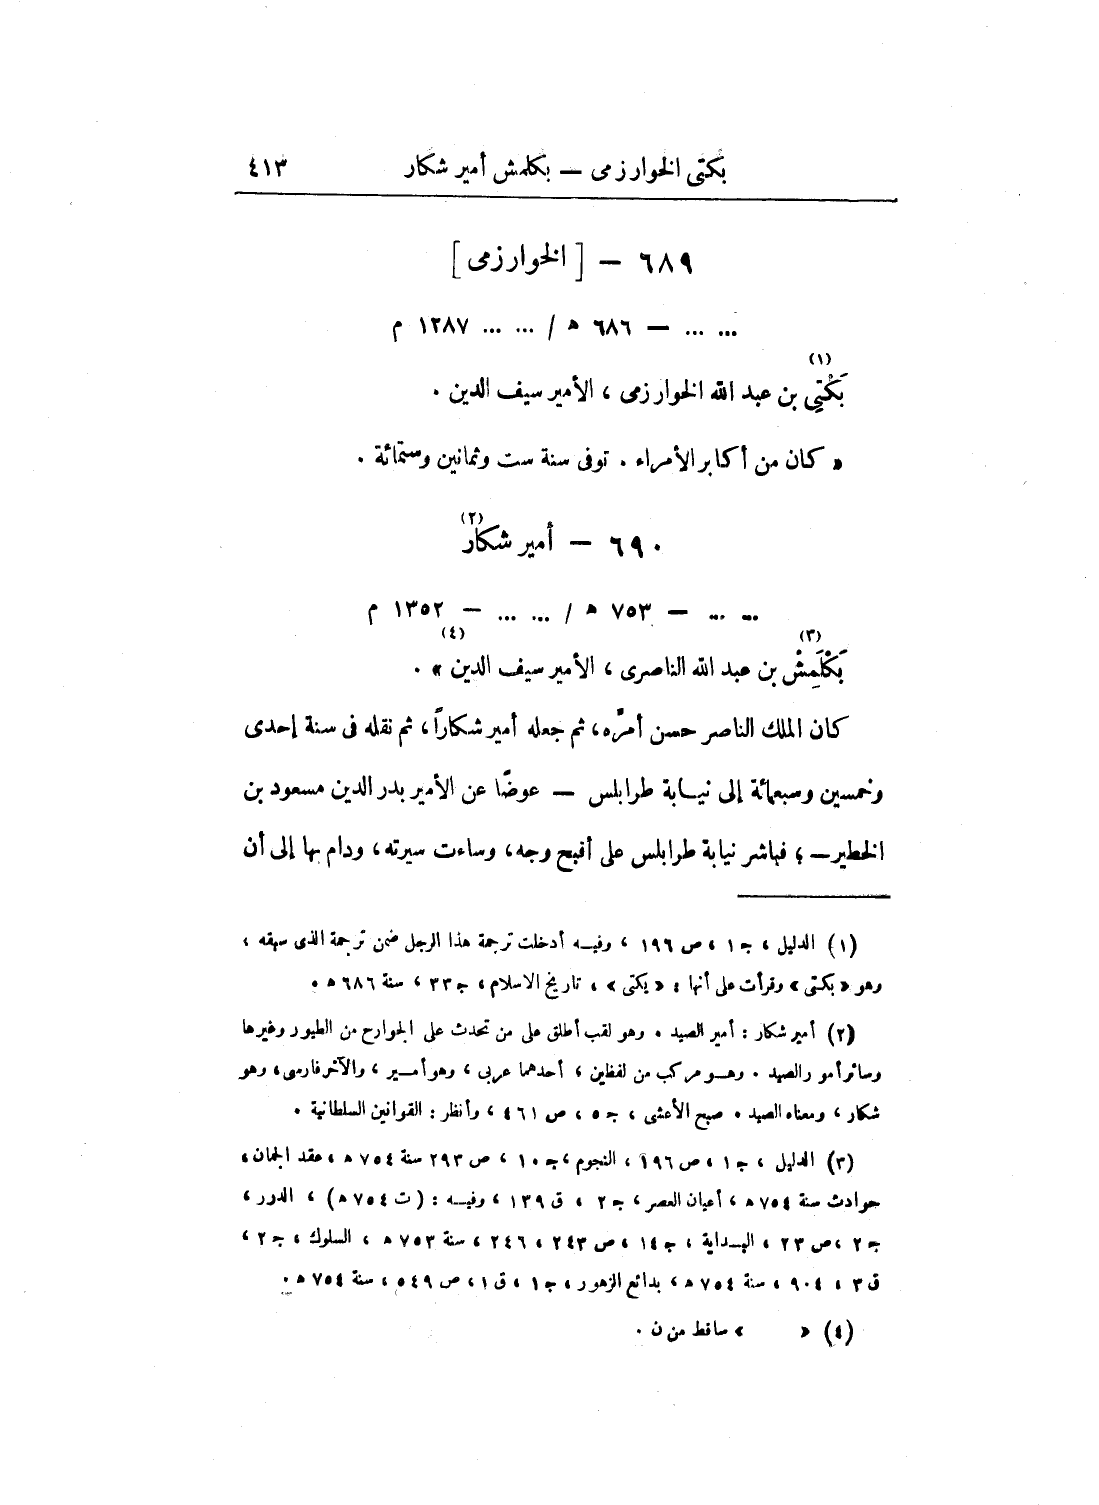 بكتى الخوارزمى — بكلمش أمير شكار ٤١٣
٦٨٩ — [ الخوارزمى ]
... ... — ٦٨٦ ه / ... ... ١٢٨٧ م
بَكْتِي (١) بن عبد الله الخوارزمى ، الأمير سيف الدين .
« كان من أكابر الأمراء . توفى سنة ست وثمانين وستمائة .
٦٩٠ — أمير شكار (٢)
... ... — ٧٥٣ ه / ... ... — ١٣٥٢ م
بَكْلَمِشْ (٣) بن عبد الله الناصرى ، الأمير سيف الدين » (٤) .
كان الملك الناصر حسن أمّره، ثم جعله أمير شكاراً، ثم نقله فى سنة إحدى
وخمسين وسبعمائة إلى نيابة طرابلس — عوضًا عن الأمير بدر الدين مسعود بن
الخطير — ؛ فباشر نيابة طرابلس على أقبح وجه، وساءت سيرته، ودام بها إلى أن
(١) الدليل ، ج ١ ، ص ١٩٦ ، وفيه أدخلت ترجمة هذا الرجل ضمن ترجمة الذى سبقه ،
وهو « بكتى » وقرأت على أنها : « يكتى » ، تاريخ الاسلام، ج ٣٣ ، سنة ٦٨٦ ه .
(٢) أمير شكار : أمير الصيد . وهو لقب أطلق على من تحدث على الجوارح من الطيور وغيرها
وسائر أمور الصيد . وهو مركب من لفظين ، أحدهما عربى ، وهو أمير ، والآخر فارسى، وهو
شكار ، ومعناه الصيد . صبح الأعشى ، ج ٥ ، ص ٤٦١ ، وأنظر : القوانين السلطانية .
(٣) الدليل ، ج ١ ، ص ١٩٦ ، النجوم ، ج ١٠ ، ص ٢٩٣ سنة ٧٥٤ ه ، عقد الجمان،
حوادث سنة ٧٥٤ ه ، أعيان العصر ، ج ٢ ، ق ١٣٩ ، وفيه : ( ت ٧٥٤ ه ) ، الدرر ،
ج ٢ ، ص ٢٣ ، البداية ، ج ١٤ ، ص ٢٤٣ ، ٢٤٦ ، سنة ٧٥٣ ه ، السلوك ، ج ٢ ،
ق ٣ ، ٩٠٤ ، سنة ٧٥٤ ه ، بدائع الزهور ، ج ١ ، ق ١ ، ص ٥٤٩ ، سنة ٧٥٤ ه .
(٤) « » ساقط من ن .